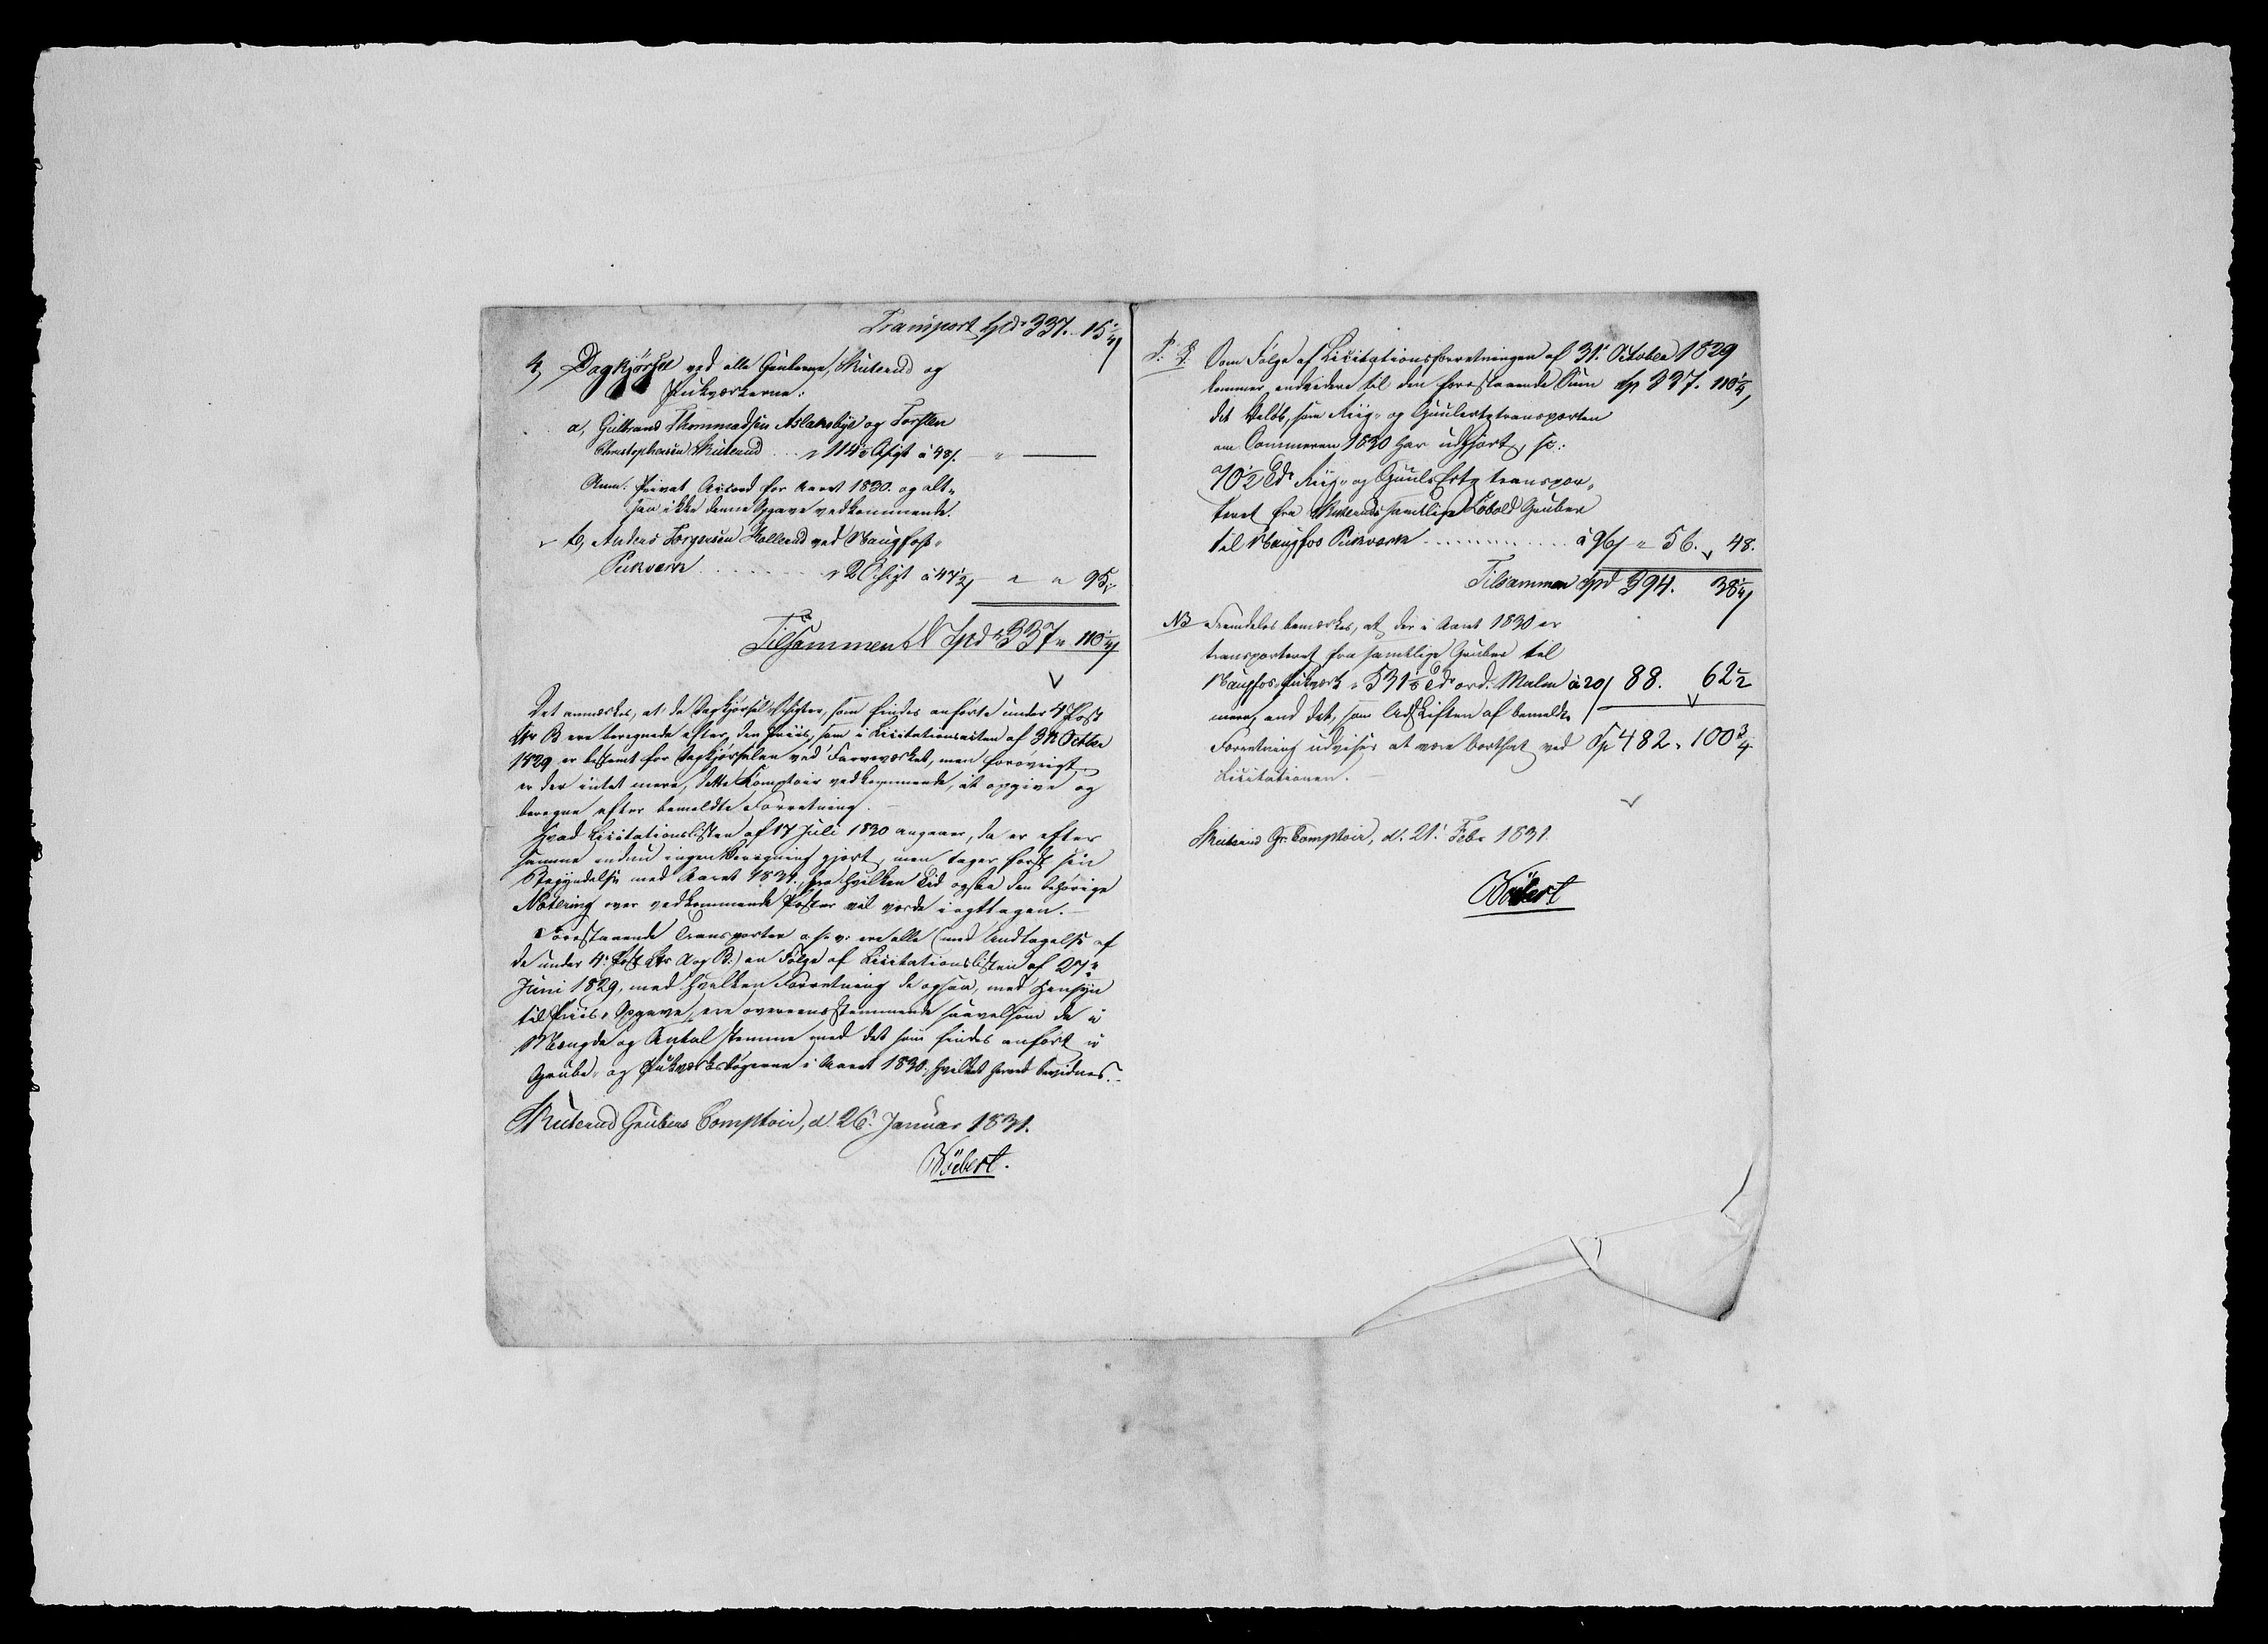 Transport Spd 337. 15 1/4
4, Dagkjørsel ved alle Gruberne, Skuterud og
Pukværkerne:
a, Gulbrand Thommadsen Aslaksbye og Torsten
Christophersen Skuterud ... 114 1/2 Schigt à 48 ß. — " —
Anm. Privat Accord for Aaret 1830. og alt-
saa ikke denne Opgave vedkommende.
b, Anders Torgersen Kollerud ved Haugfoss-
Pukværk ........ 2 Schigt à 47 1/2 ß — " " 95.
Tilsammen Spd 337 " 110 1/4 ß
Det anmærkes, at de Dagkjørsel-Schigter, som findes anførte under 4 Post
Ltr B ere beregnede efter den Priis, som i Licitationsacten af 31 Octbr
1829 er bestemt for Dagkjørselen ved Farveværket, men forøvrigt
er der intet mere, dette Comptoir vedkommende, at opgive og
beregne efter bemeldte Forretning. —
Hvad Licitationslisten af 17 Juli 1830 angaaer, da er efter
samme endnu ingen Beregning gjort, men tager først sin
Begyndelse med Aaret 1831., fra hvilken Tid ogsaa den behørige
Notering over vedkommende Poster vil vorde iagttagen. —
Forestaaende Transporter o. s. v. ere alle (med Undtagelse af
de under 4. Post Ltr A og B.) en Følge af Licitationslisten af 27
Juni 1829, med hvilken Forretning de ogsaa, med Hensyn
til Priis-Opgave, ere overeensstemmende saavelsom de i
Mængde og Antal stemme med det som findes anført i
Grube- og Pukværksbøgerne i Aaret 1830., hvilket herved bevidnes. —
Skuterud Grubers Comptoir, d. 26. Januar 1831.
Bübert.
P. S. Som Følge af Licitationsforretningen af 31. October 1829
kommer endvidere til den forestaaende Sum Sp 337. 110 1/4 ß
det Beløb, som Riig- og Guulertztransporten
om Sommeren 1830 har udgjort, sc:
70 1/2 Td Riig- og Guuls Ertz transpor-
teret fra Skuteruds samtlige Kobold Gruber
til Haugfos Pukværk ............ à 96 ß " 56. 48.
Tilsammen Spd 394. 38 1/4 ß
NB Fremdeles bemærkes, at der i Aaret 1830 er
transporteret fra samtlige Gruber til
Haugfos-Pukværk " 531 1/8 Td ord. Malm à 20 ß 88. 62 1/2
mere, end det, som Udskriften af bemeldte
Forretning udviser at være bortsat ved Sp 482 " 100 3/4
Licitationen. —
Skuterud Gr. Comptoir, d. 21. Febr 1831.
Bübert